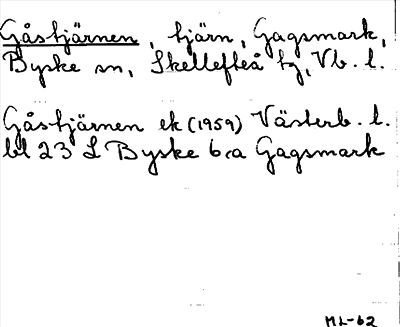 Gåstjärnen, tjärn, Gagsmark,
Byske sn, Skellefteå tg, Vb. l.
Gåstjärnen ek (1959) Västerb. l.
bl 23 L Byske 6:a Gagsmark
ML-62